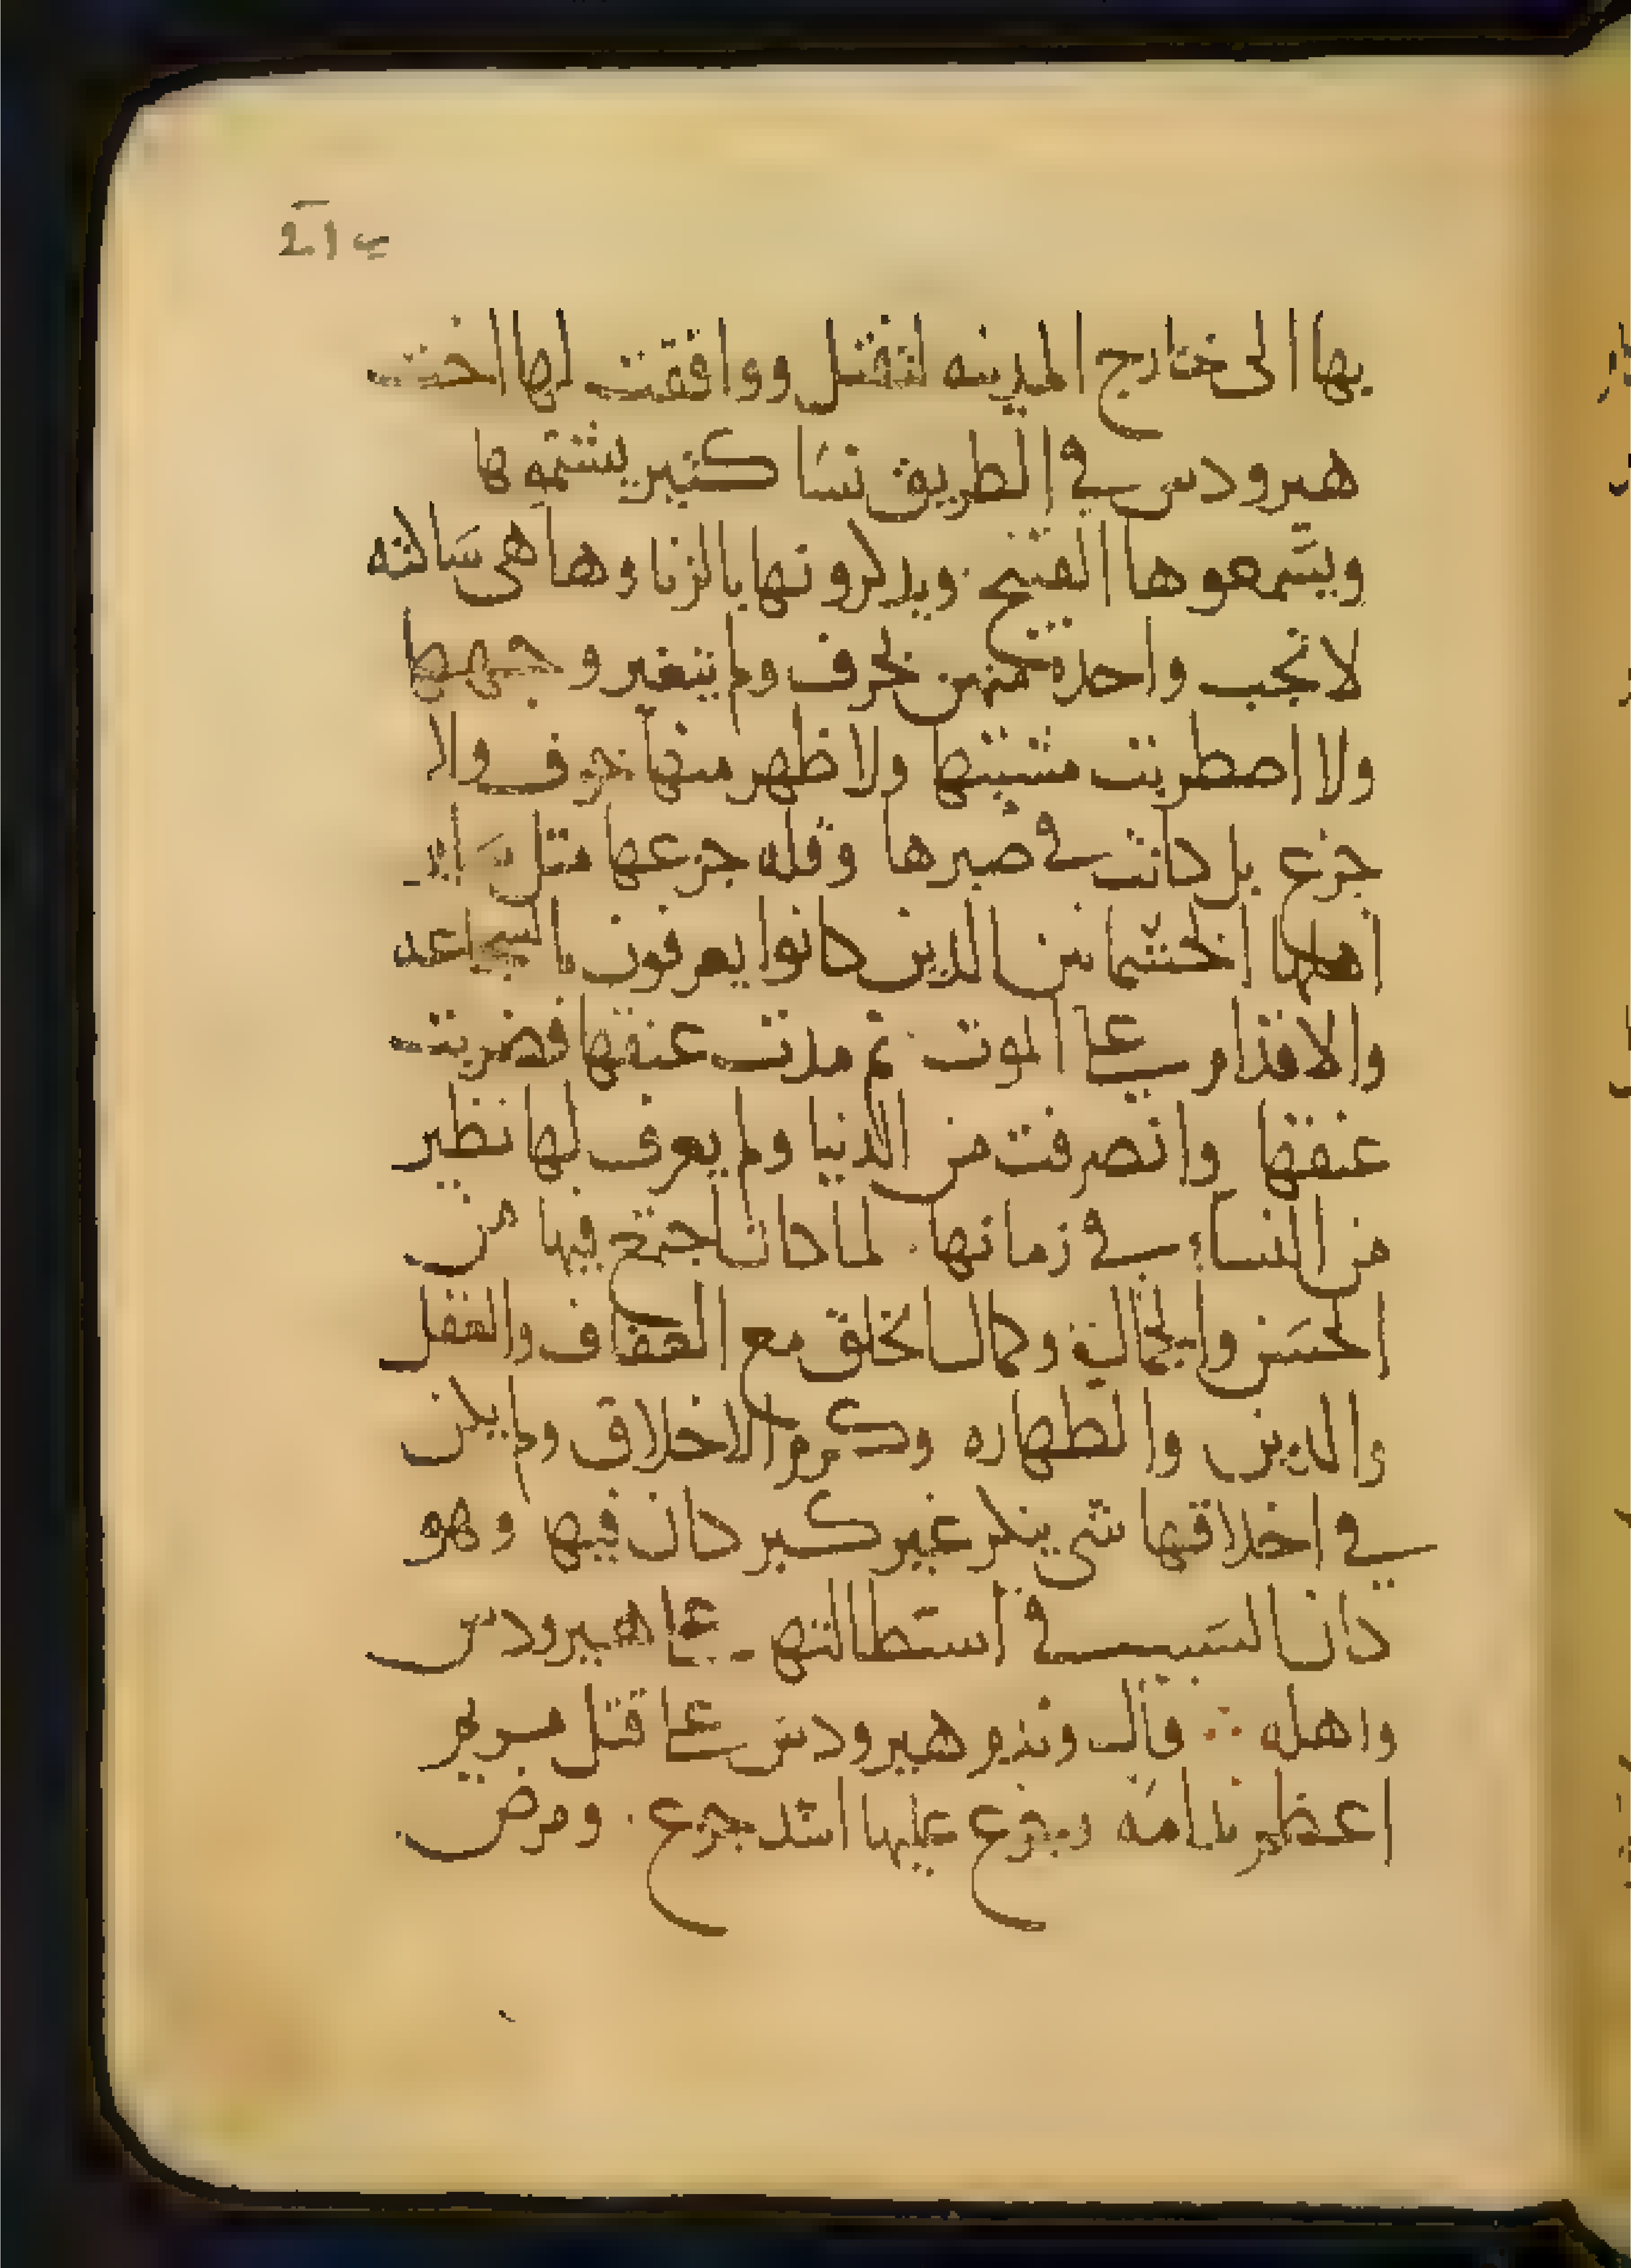 بها الى خارج المدينه لتقتل ووافقت لها اخت
هيرودس في الطريق نسا كثير يشتموها
ويسمعوها القبيح ويدكرونها بالزناء وهاهى ساكته
لا تجب واحدة منهن بحرف ولم يتغير وجهها
ولا اصطربت مشيتها ولا ظهر منها خوف ولا
جزع بل كانت في صبرها وقله جزعها مثل
اهلها الحشمانين الدين كانوا يعرفون بالشجاعه
والاقدام على الموت ثم مدت عنقها فضربت
عنقها وانصرفت من الدنيا ولم يعرف لها نظير
من النساء في زمانها لما كان اجتمع فيها من
الحسن والجمال وكمال الخلق مع العفاف والعقل
والدين والطهاره وكرم الاخلاق ولم يكن
في اخلاقها شي ينكر غير كبر كان فيها وهو
كان السبب في استطالتها على هيرودس
واهله ∴ قال وندم هيرودس على قتل مريم
اعظم ندامه وجزع عليها اشد جزع ومرض